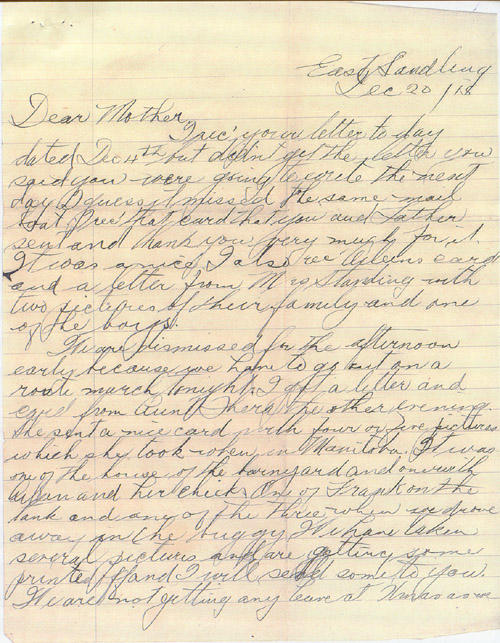 East Sandling
Dec 20/15
Dear Mother,
I rec' your letter to day
dated Dec 4th but didn't get the letter you
said you were going to write the next
day I guess it missed the same mail
boat. I rec' that card that you and Father
sent and thank you very much for it.
It was a nice I also rec card
and a letter from Mrs Standing with
two pictures of their family and one
of the boys.
We are dismissed for the afternoon
early because we have to go out on a
route march tonight. I got a letter and
card from Aunt the other evening
she sent a nice card with four or five pictures
which she took when in Manitoba. It was
one of the house of the barnyard and one with
and her chicks One of Frank on the
tank and one of the three when we drove
away in the buggy. We have taken
several pictures and are getting some
printed off and I will send some to you.
We are not getting any leave at Xmas as we